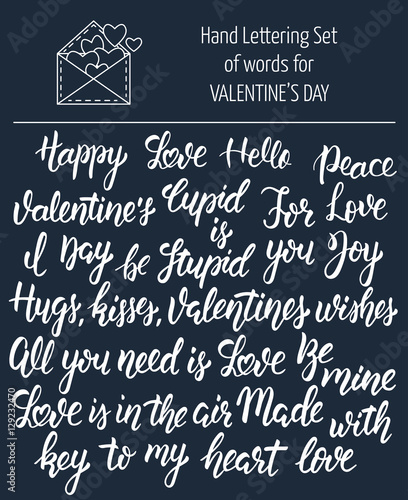 Hand Lettering Set
of words for
VALENTINE'S DAY
Happy Love Hello Peace
Valentine's Cupid is For Love
I Day be Stupid you Joy
Hugs, kisses, Valentines wishes
All you need is Love Be mine
Love is in the air Made with
key to my heart love
129232470